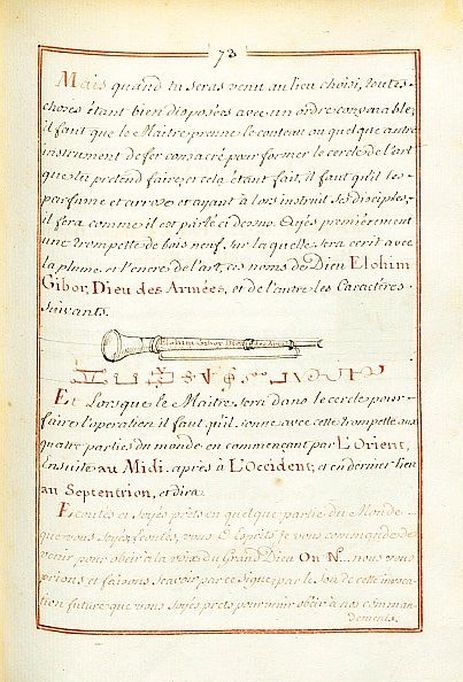 73
Mais quand tu seras venu au lieu choisi, toutes
choses étant bien disposées avec un ordre convenable,
il faut que le Maitre prenne le couteau ou quelque autre
instrument de fer consacré pour former le cercle de l'art
qu'il prétend faire; et cela étant fait, il faut qu'il les
parfume et arrose et ayant à lors instruit ses disciples,
il fera comme il est parlé ci dessus. Ayés premièrement
une trompette de bois neuf, sur laquelle sera ecrit avec
la plume et l'encre de l'art, ces noms de Dieu Elohim
Gibor, Dieu des Armées, et de l'autre les Caractères
Suivants.
Elohim Gibor Dieu des Armées
Et Lorsque le Maitre sera dans le cercle pour
faire l'operation il faut qu'il sonne avec cette trompette aux
quatre parties du monde en commençant par L'Orient,
Ensuite au Midi, après à L'Occident, et en dernier lieu
au Septentrion, et dira.
Ecoutés et soyés prêts en quelque partie du Monde
que vous soyés Ecoutés, vous O Esprits je vous commande de
venir pour obeir à la voix du Grand Dieu On N... nous vous
prions et faisons sçavoir par ce signe; par le son de cette invoca-
tion future que vous soyés prets pour venir obéir à nos comman-
dements.